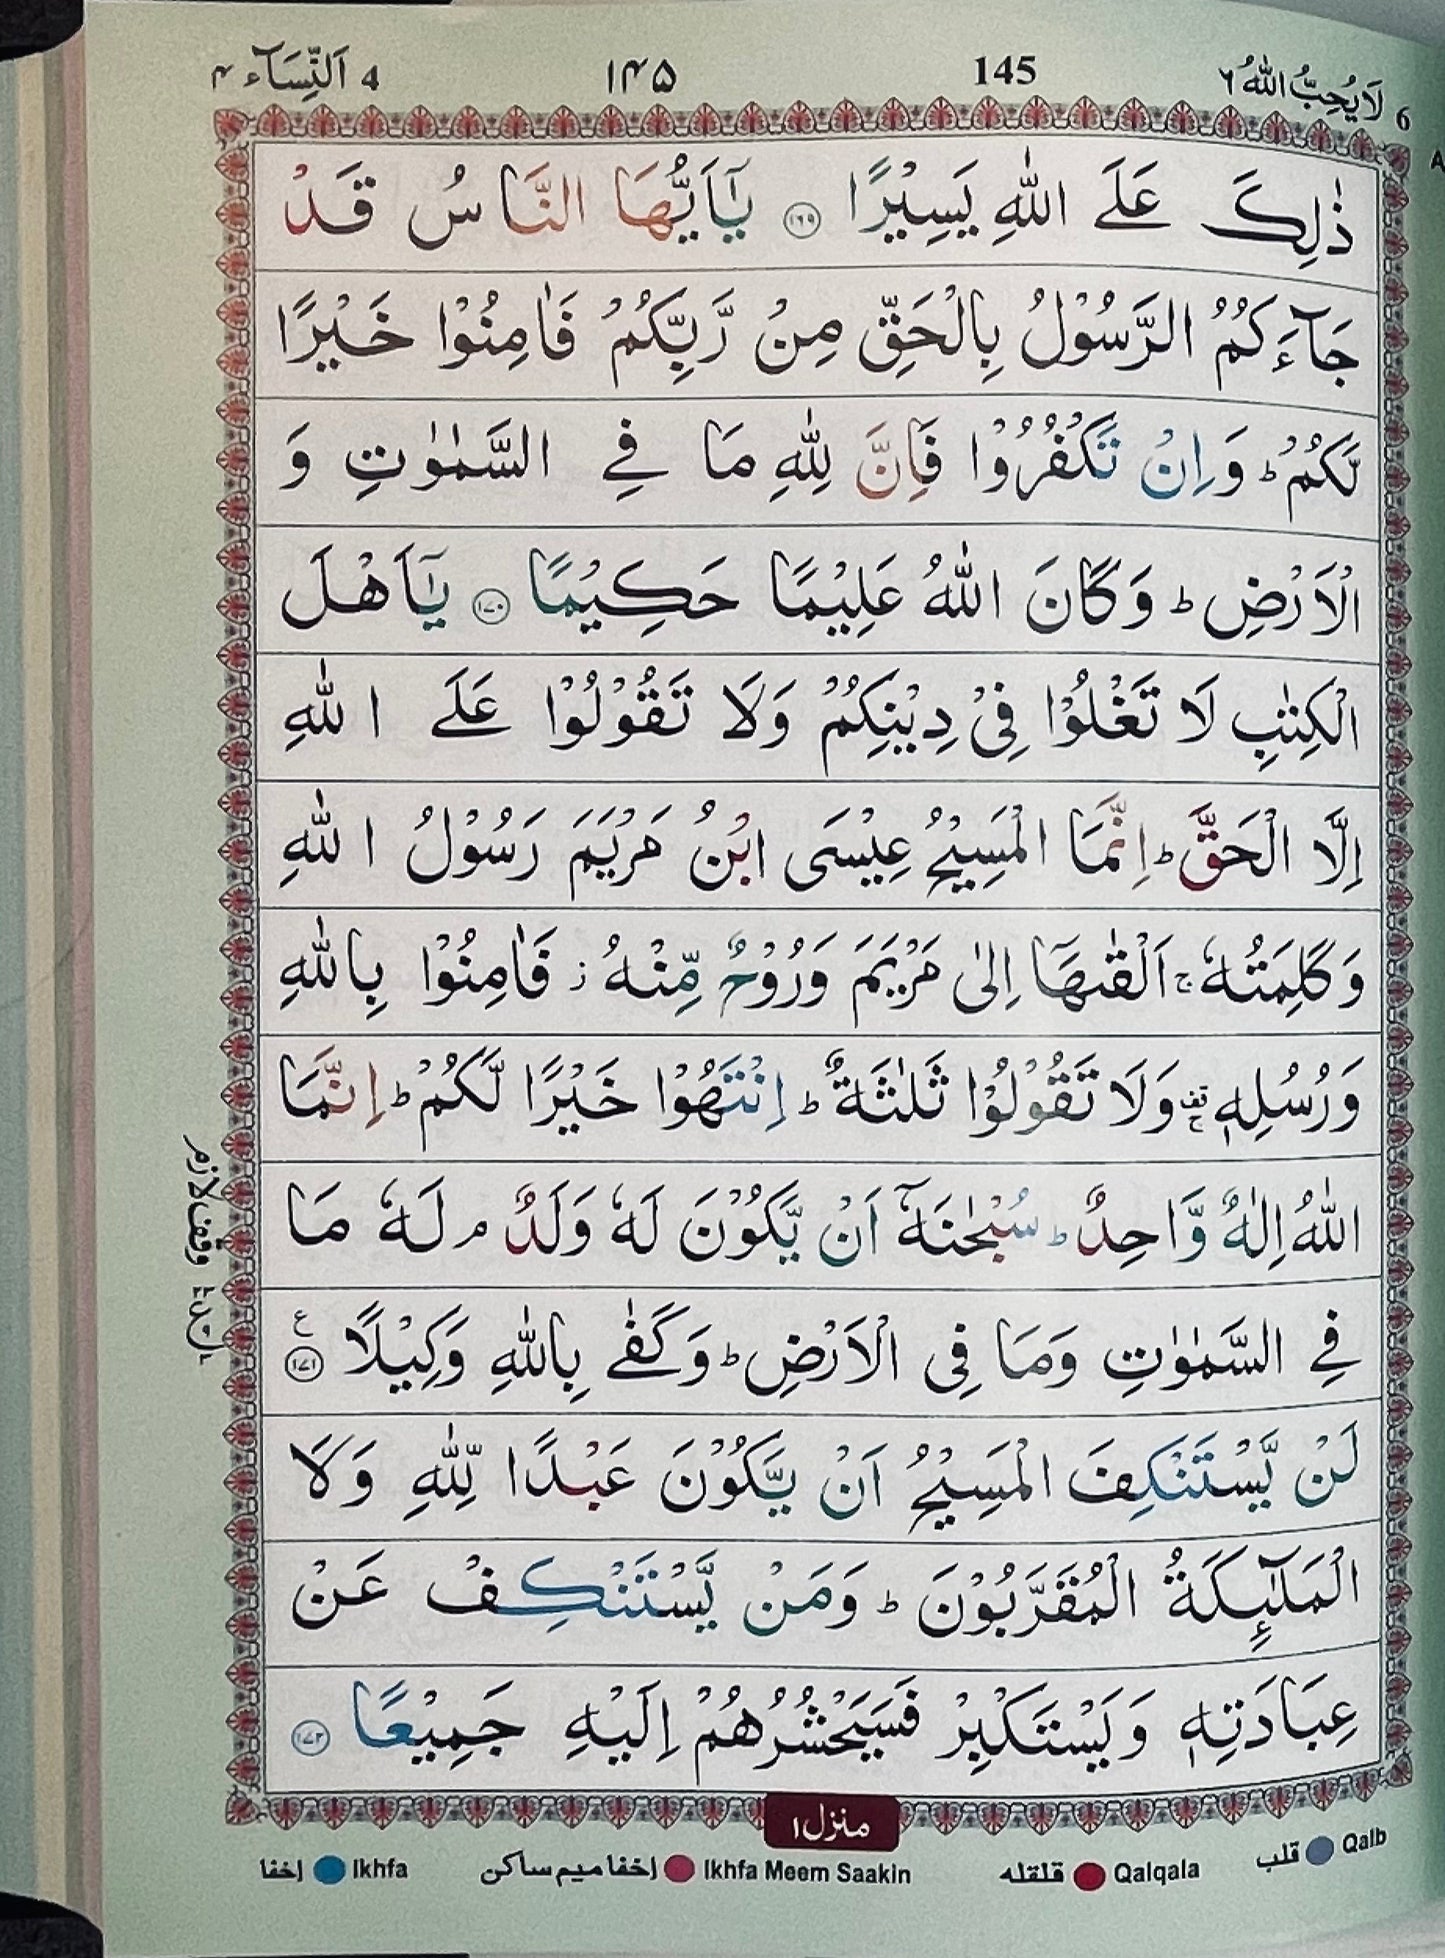 6 لَا يُحِبُّ اللّٰهُ ٦ 145 ١٤٥ 4 اَلنِّسَآء ٤
ذٰلِكَ عَلَى اللّٰهِ يَسِيْرًا ١٦٩ يٰٓاَيُّهَا النَّاسُ قَدْ
جَآءَكُمُ الرَّسُوْلُ بِالْحَقِّ مِنْ رَّبِّكُمْ فَاٰمِنُوْا خَيْرًا
لَّكُمْ ؕ وَاِنْ تَكْفُرُوْا فَاِنَّ لِلّٰهِ مَا فِى السَّمٰوٰتِ وَ
الْاَرْضِ ؕ وَكَانَ اللّٰهُ عَلِيْمًا حَكِيْمًا ١٧٠ يٰٓاَهْلَ
الْكِتٰبِ لَا تَغْلُوْا فِىْ دِيْنِكُمْ وَلَا تَقُوْلُوْا عَلَى اللّٰهِ
اِلَّا الْحَقَّ ؕ اِنَّمَا الْمَسِيْحُ عِيْسَى ابْنُ مَرْيَمَ رَسُوْلُ اللّٰهِ
وَكَلِمَتُهٗ ۚ اَلْقٰىهَاۤ اِلٰى مَرْيَمَ وَرُوْحٌ مِّنْهُ ز فَاٰمِنُوْا بِاللّٰهِ
وَرُسُلِهٖ قف وَلَا تَقُوْلُوْا ثَلٰثَةٌ ؕ اِنْتَهُوْا خَيْرًا لَّكُمْ ؕ اِنَّمَا
اللّٰهُ اِلٰهٌ وَّاحِدٌ ؕ سُبْحٰنَهٗۤ اَنْ يَّكُوْنَ لَهٗ وَلَدٌ م لَهٗ مَا
فِى السَّمٰوٰتِ وَمَا فِى الْاَرْضِ ؕ وَكَفٰى بِاللّٰهِ وَكِيْلًا ١٧١ ع
لَنْ يَّسْتَنْكِفَ الْمَسِيْحُ اَنْ يَّكُوْنَ عَبْدًا لِّلّٰهِ وَلَا
الْمَلٰٓئِكَةُ الْمُقَرَّبُوْنَ ؕ وَمَنْ يَّسْتَنْكِفْ عَنْ
عِبَادَتِهٖ وَيَسْتَكْبِرْ فَسَيَحْشُرُهُمْ اِلَيْهِ جَمِيْعًا ١٧٢
وقف لازم
منزل ١
قلب Qalb قلقله Qalqala إخفا ميم ساكن Ikhfa Meem Saakin إخفا Ikhfa